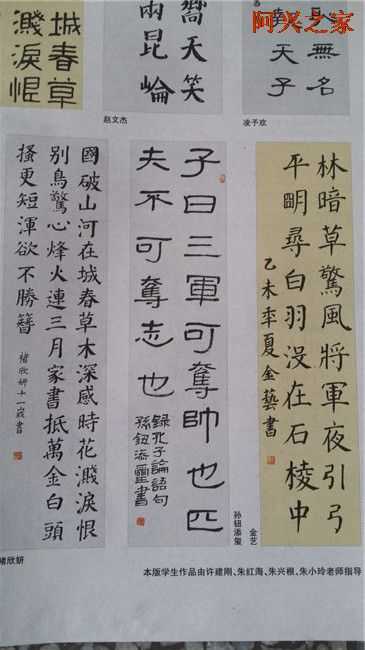 阿兴之家
無名
天子
天笑
兩昆崙
城春草
濺淚恨
赵文杰
凌予欢
林暗草驚風將軍夜引弓
平明尋白羽没在石棱中
乙未秊夏金藝書
金艺
子曰三軍可奪帥也匹
夫不可奪志也
録孔子論語句
孫鈕添璽書
孙钮添玺
國破山河在城春草木深感時花濺淚恨
別鳥驚心烽火連三月家書抵萬金白頭
搔更短渾欲不勝簪
褚欣妍十一歲書
褚欣妍
本版学生作品由许建刚、朱红海、朱兴根、朱小玲老师指导